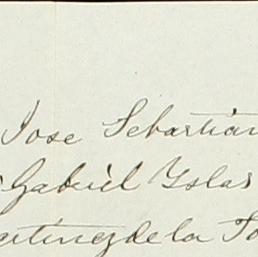 Jose Sebastian
Gabriel Yslas
artinez de la To